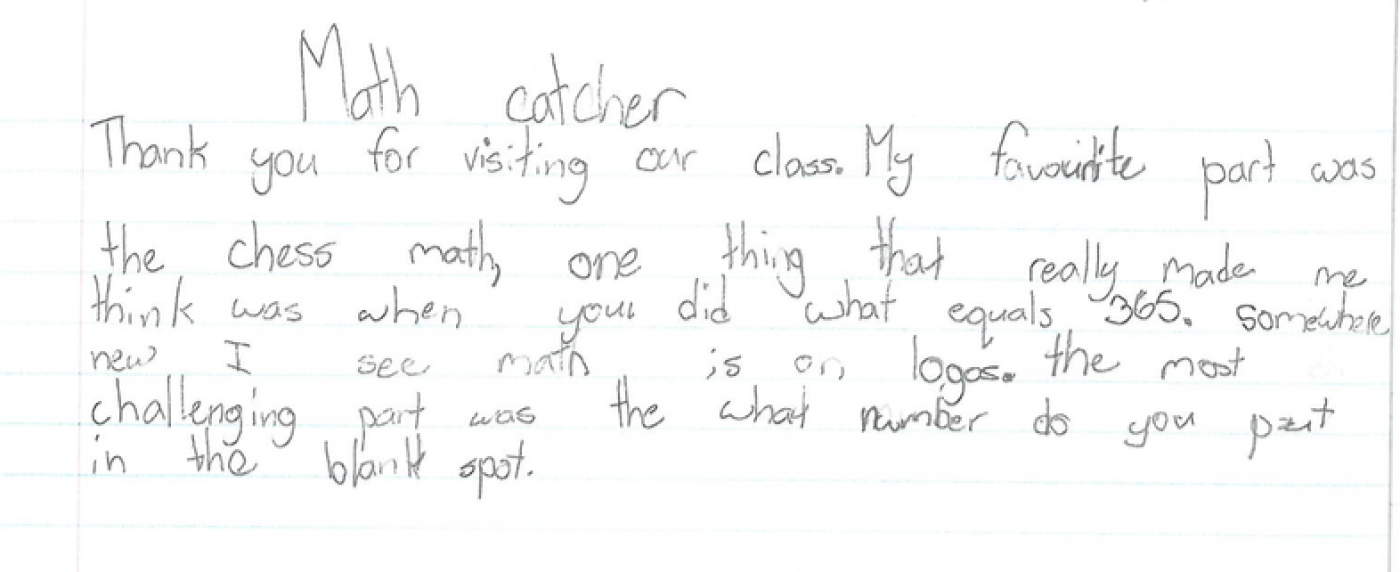 Math catcher
Thank you for visiting our class. My favourite part was
the chess math, one thing that really made me
think was when you did what equals 365. somewhere
new I see math is on logos. the most
challenging part was the what number do you put
in the blank spot.